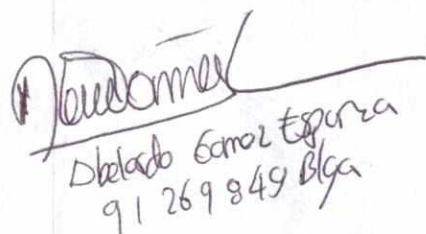 Abelardo Gomez Esparza
91 269 849 B/ga